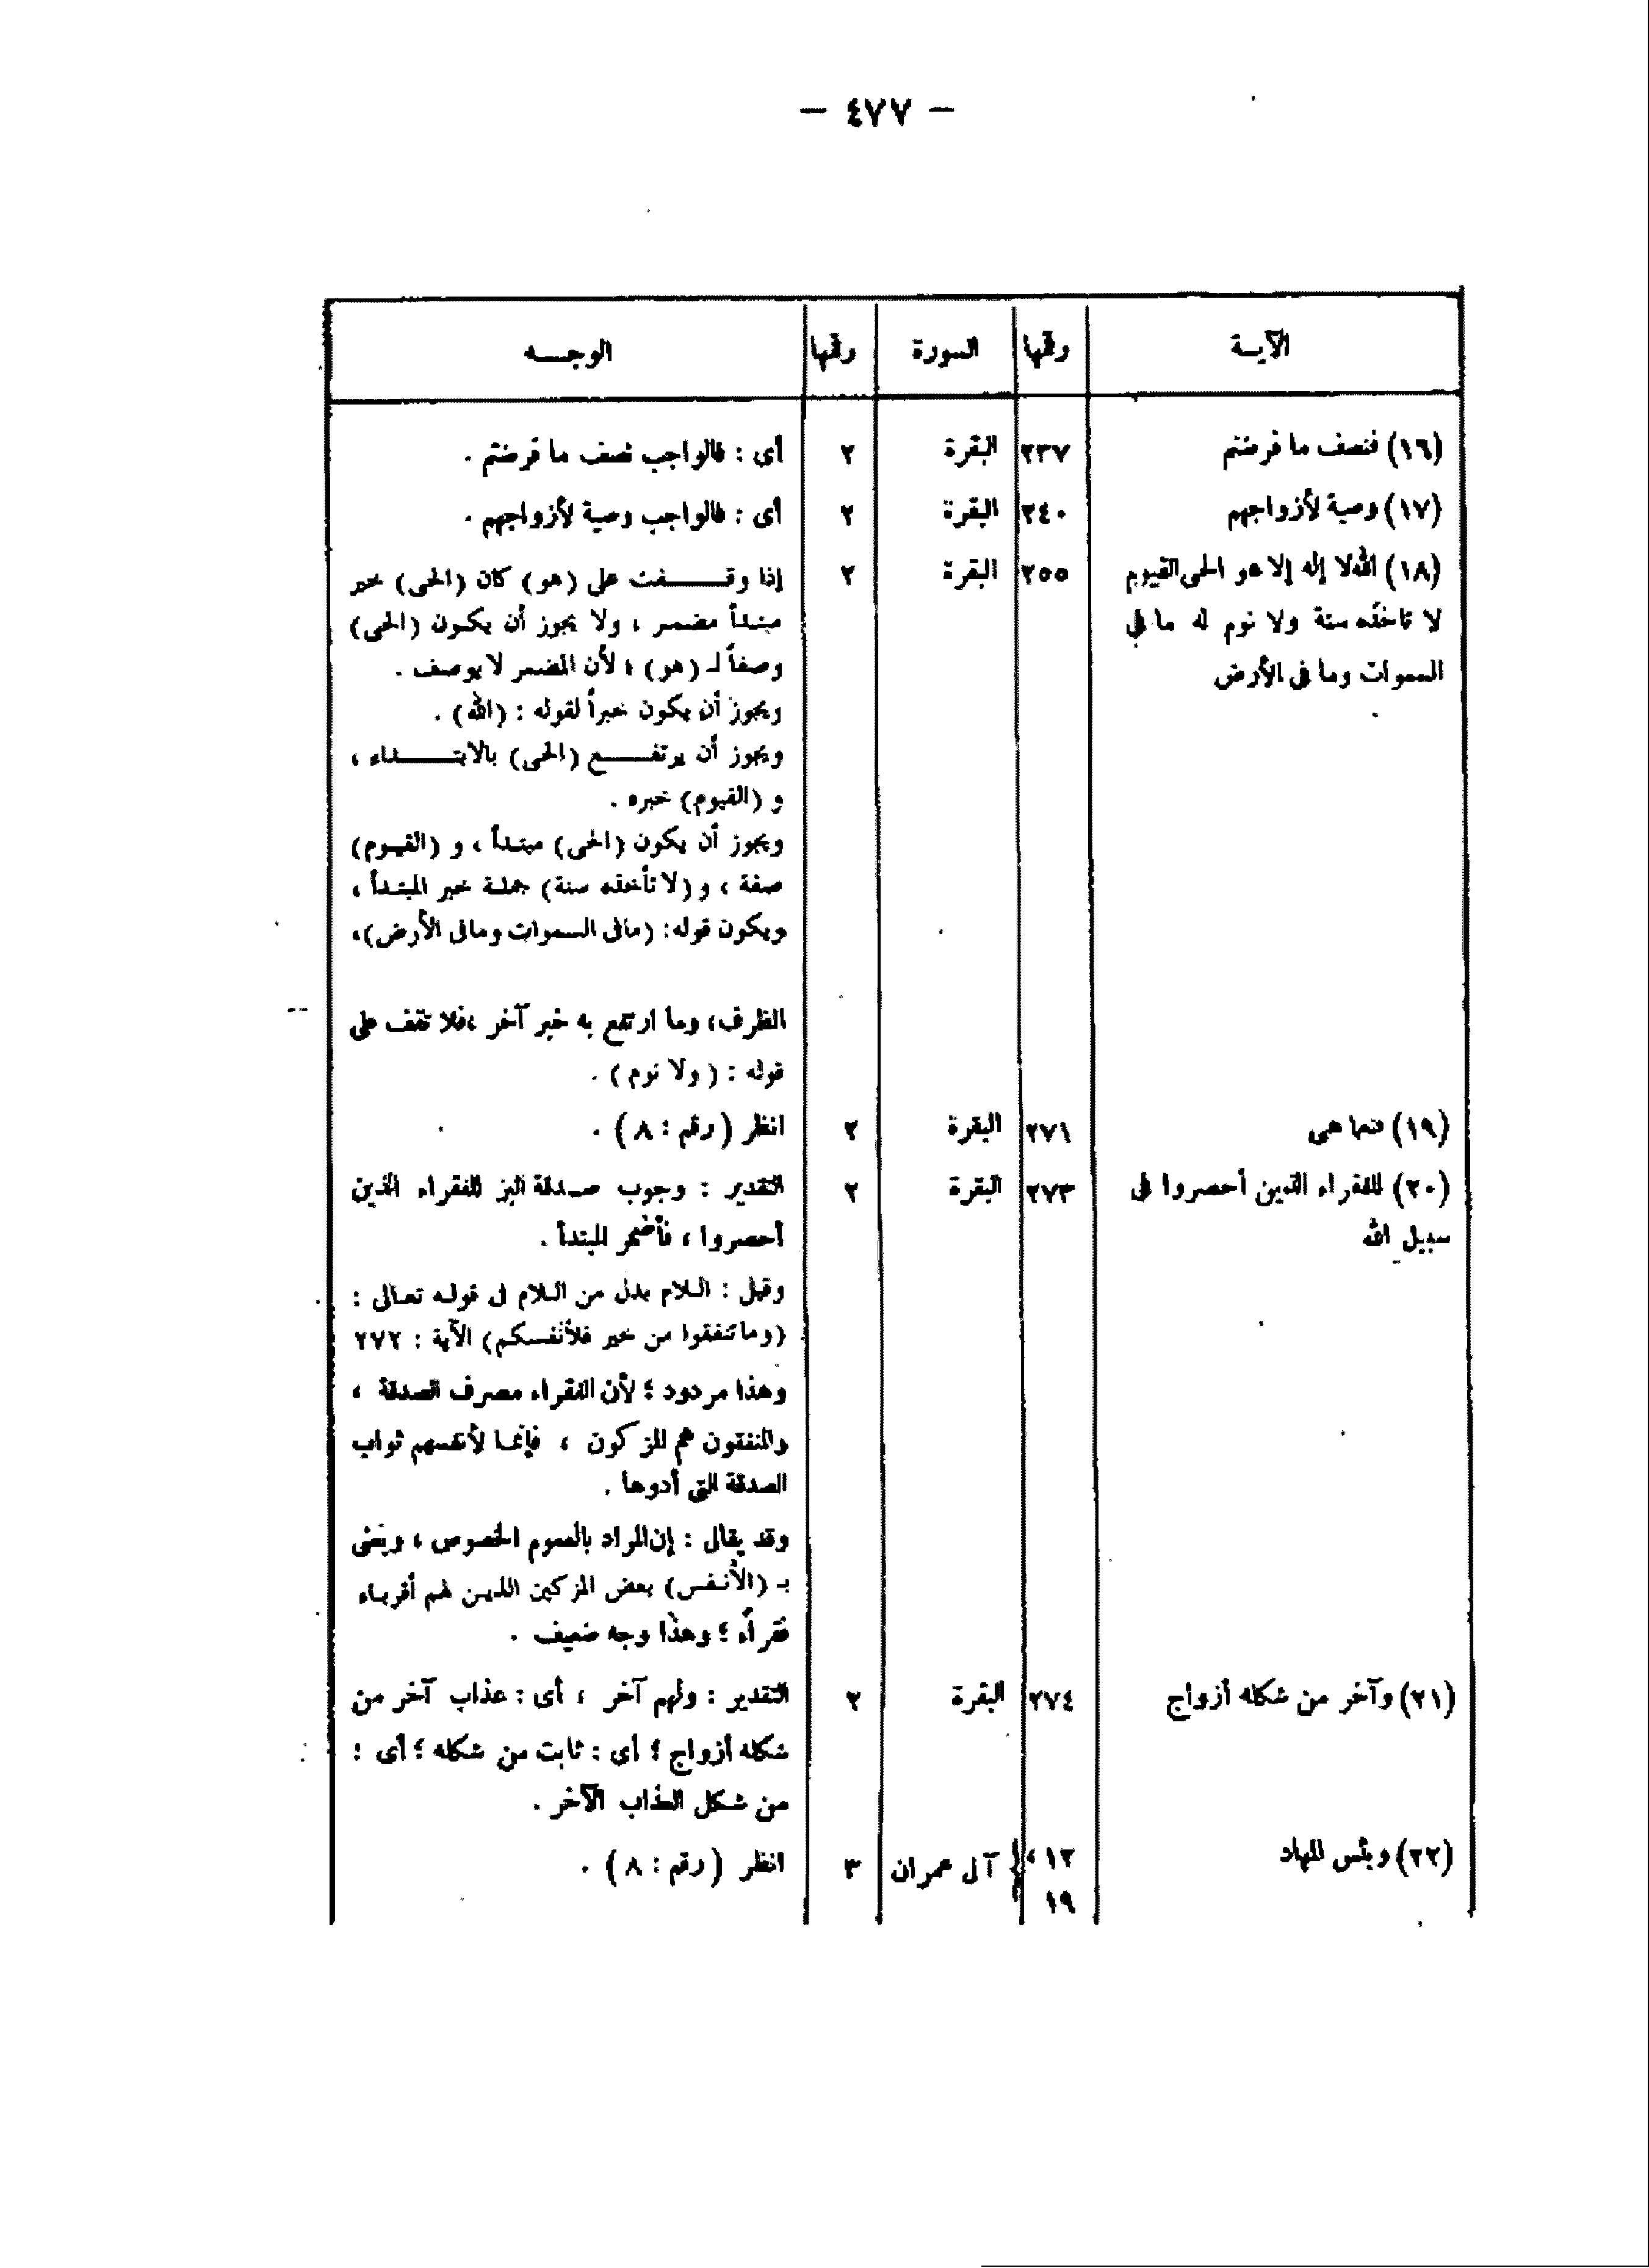 — ٤٧٧ —
الآيــة رقمها السورة رقمها الوجـــه
(١٦) فنصف ما فرضتم ٢٣٧ البقرة ٢ أى : فالواجب نصف ما فرضتم .
(١٧) وصية لأزواجهم ٢٤٠ البقرة ٢ أى : فالواجب وصية لأزواجهم .
(١٨) الله لا إله إلا هو الحى القيوم ٢٥٥ البقرة ٢ إذا وقــــفت على (هو) كان (الحى) خبر
لا تأخذه سنة ولا نوم له ما فى
السموات وما فى الأرض
مبتدأ مضمر ، ولا يجوز أن يكون (الحى)
وصفاً لـ (هو) ؛ لأن المضمر لا يوصف .
ويجوز أن يكون خبراً لقوله : (الله) .
ويجوز أن يرتفـــع (الحى) بالابتـــــداء ،
و (القيوم) خبره .
ويجوز أن يكون (الحى) مبتدأ ، و (القيـوم)
صفة ، و (لا تأخذه سنة) جملة خبر المبتدأ ،
ويكون قوله: (مافى السموات ومافى الأرض)،
الظرف، وما ارتفع به خبر آخر ،فلا تقف على
قوله : ( ولا نوم ) .
(١٩) فنعما هى ٢٧١ البقرة ٢ انظر ( رقم : ٨ ) .
(٢٠) للفقراء الذين أحصروا فى ٢٧٣ البقرة ٢ التقدير : وجوب صـدقة البر للفقراء الذين
سبيل الله أحصروا ، فأضمر المبتدأ .
وقيل : الـلام بدل من الـلام فى قوله تعـالى :
(وما تنفقوا من خير فلأنفسكم) الآية : ٢٧٢
وهذا مردود ؛ لأن الفقراء مصرف الصدقة ،
والمنفقون هم المزكون ، فإنما لأنفسهم ثواب
الصدقة التى أدوها .
وقد يقال : إن المراد بالعموم الخصوص ، ويعنى
بـ (الأنفس) بعض المزكين الذيـن لهم أقربـاء
فقراء ؛ وهذا وجه ضعيف .
(٢١) وآخر من شكله أزواج ٢٧٤ البقرة ٢ التقدير : ولهم آخر ، أى : عذاب آخر من
شكله أزواج ؛ أى : ثابت من شكله ؛ أى :
من شـكل العذاب الآخر .
(٢٢) وبئس المهاد ١٢ ، آل عمران ٣ انظر ( رقم : ٨ ) .
١٩